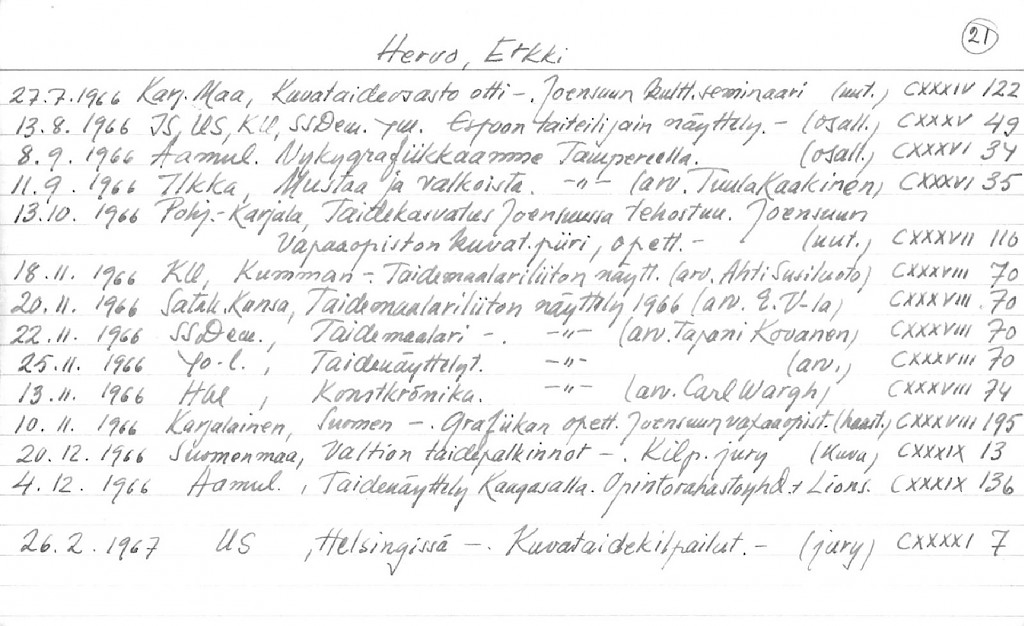 21
Hervo, Erkki
27.7.1966 Karj. Maa, Kuvataideosasto otti -. Joensuun kultt. seminaari (uut.) CXXXIV 122
13.8.1966 IS, US, KU, SSDem. ym. Espoon taiteilijain näyttely. - (osall.) CXXXV 49
8.9.1966 Aamul. Nykygrafiikkaamme Tampereella. (osall.) CXXXVI 34
11.9.1966 Ilkka, Mustaa ja valkoista. -"- (arv. Tuula Kaakinen) CXXXVI 35
13.10.1966 Pohj.-Karjala, Taidekasvatus Joensuussa tehostuu. Joensuun
Vapaaopiston kuvat.piiri, opett. - (uut.) CXXXVII 110
18.11.1966 KU, Kumman - Taidemaalariliiton näytt. (arv. Ahti Susiluoto) CXXXVIII 70
20.11.1966 Satak. Kansa, Taidemaalariliiton näyttely 1966 (arv. E. V-la) CXXXVIII 70
22.11.1966 SSDem., Taidemaalari -. -"- (arv. Tapani Kovanen) CXXXVIII 70
25.11.1966 Yo-l., Taidenäyttelyt. -"- (arv.) CXXXVIII 70
13.11.1966 Hbl, Konstkrönika. -"- (arv. Carl Wargh) CXXXVIII 74
10.11.1966 Karjalainen, Suomen -. Grafiikan opett. Joensuun vapaaopist. (haast.) CXXXVIII 195
20.12.1966 Suomenmaa, Valtion taidepalkinnot -. Kilp. jury (kuva) CXXXIX 13
4.12.1966 Aamul., Taidenäyttely Kangasalla. Opintorahastoyhd. + Lions. CXXXIX 136
26.2.1967 US, Helsingissä -. Kuvataidekilpailut. - (jury) CXXXXI 7